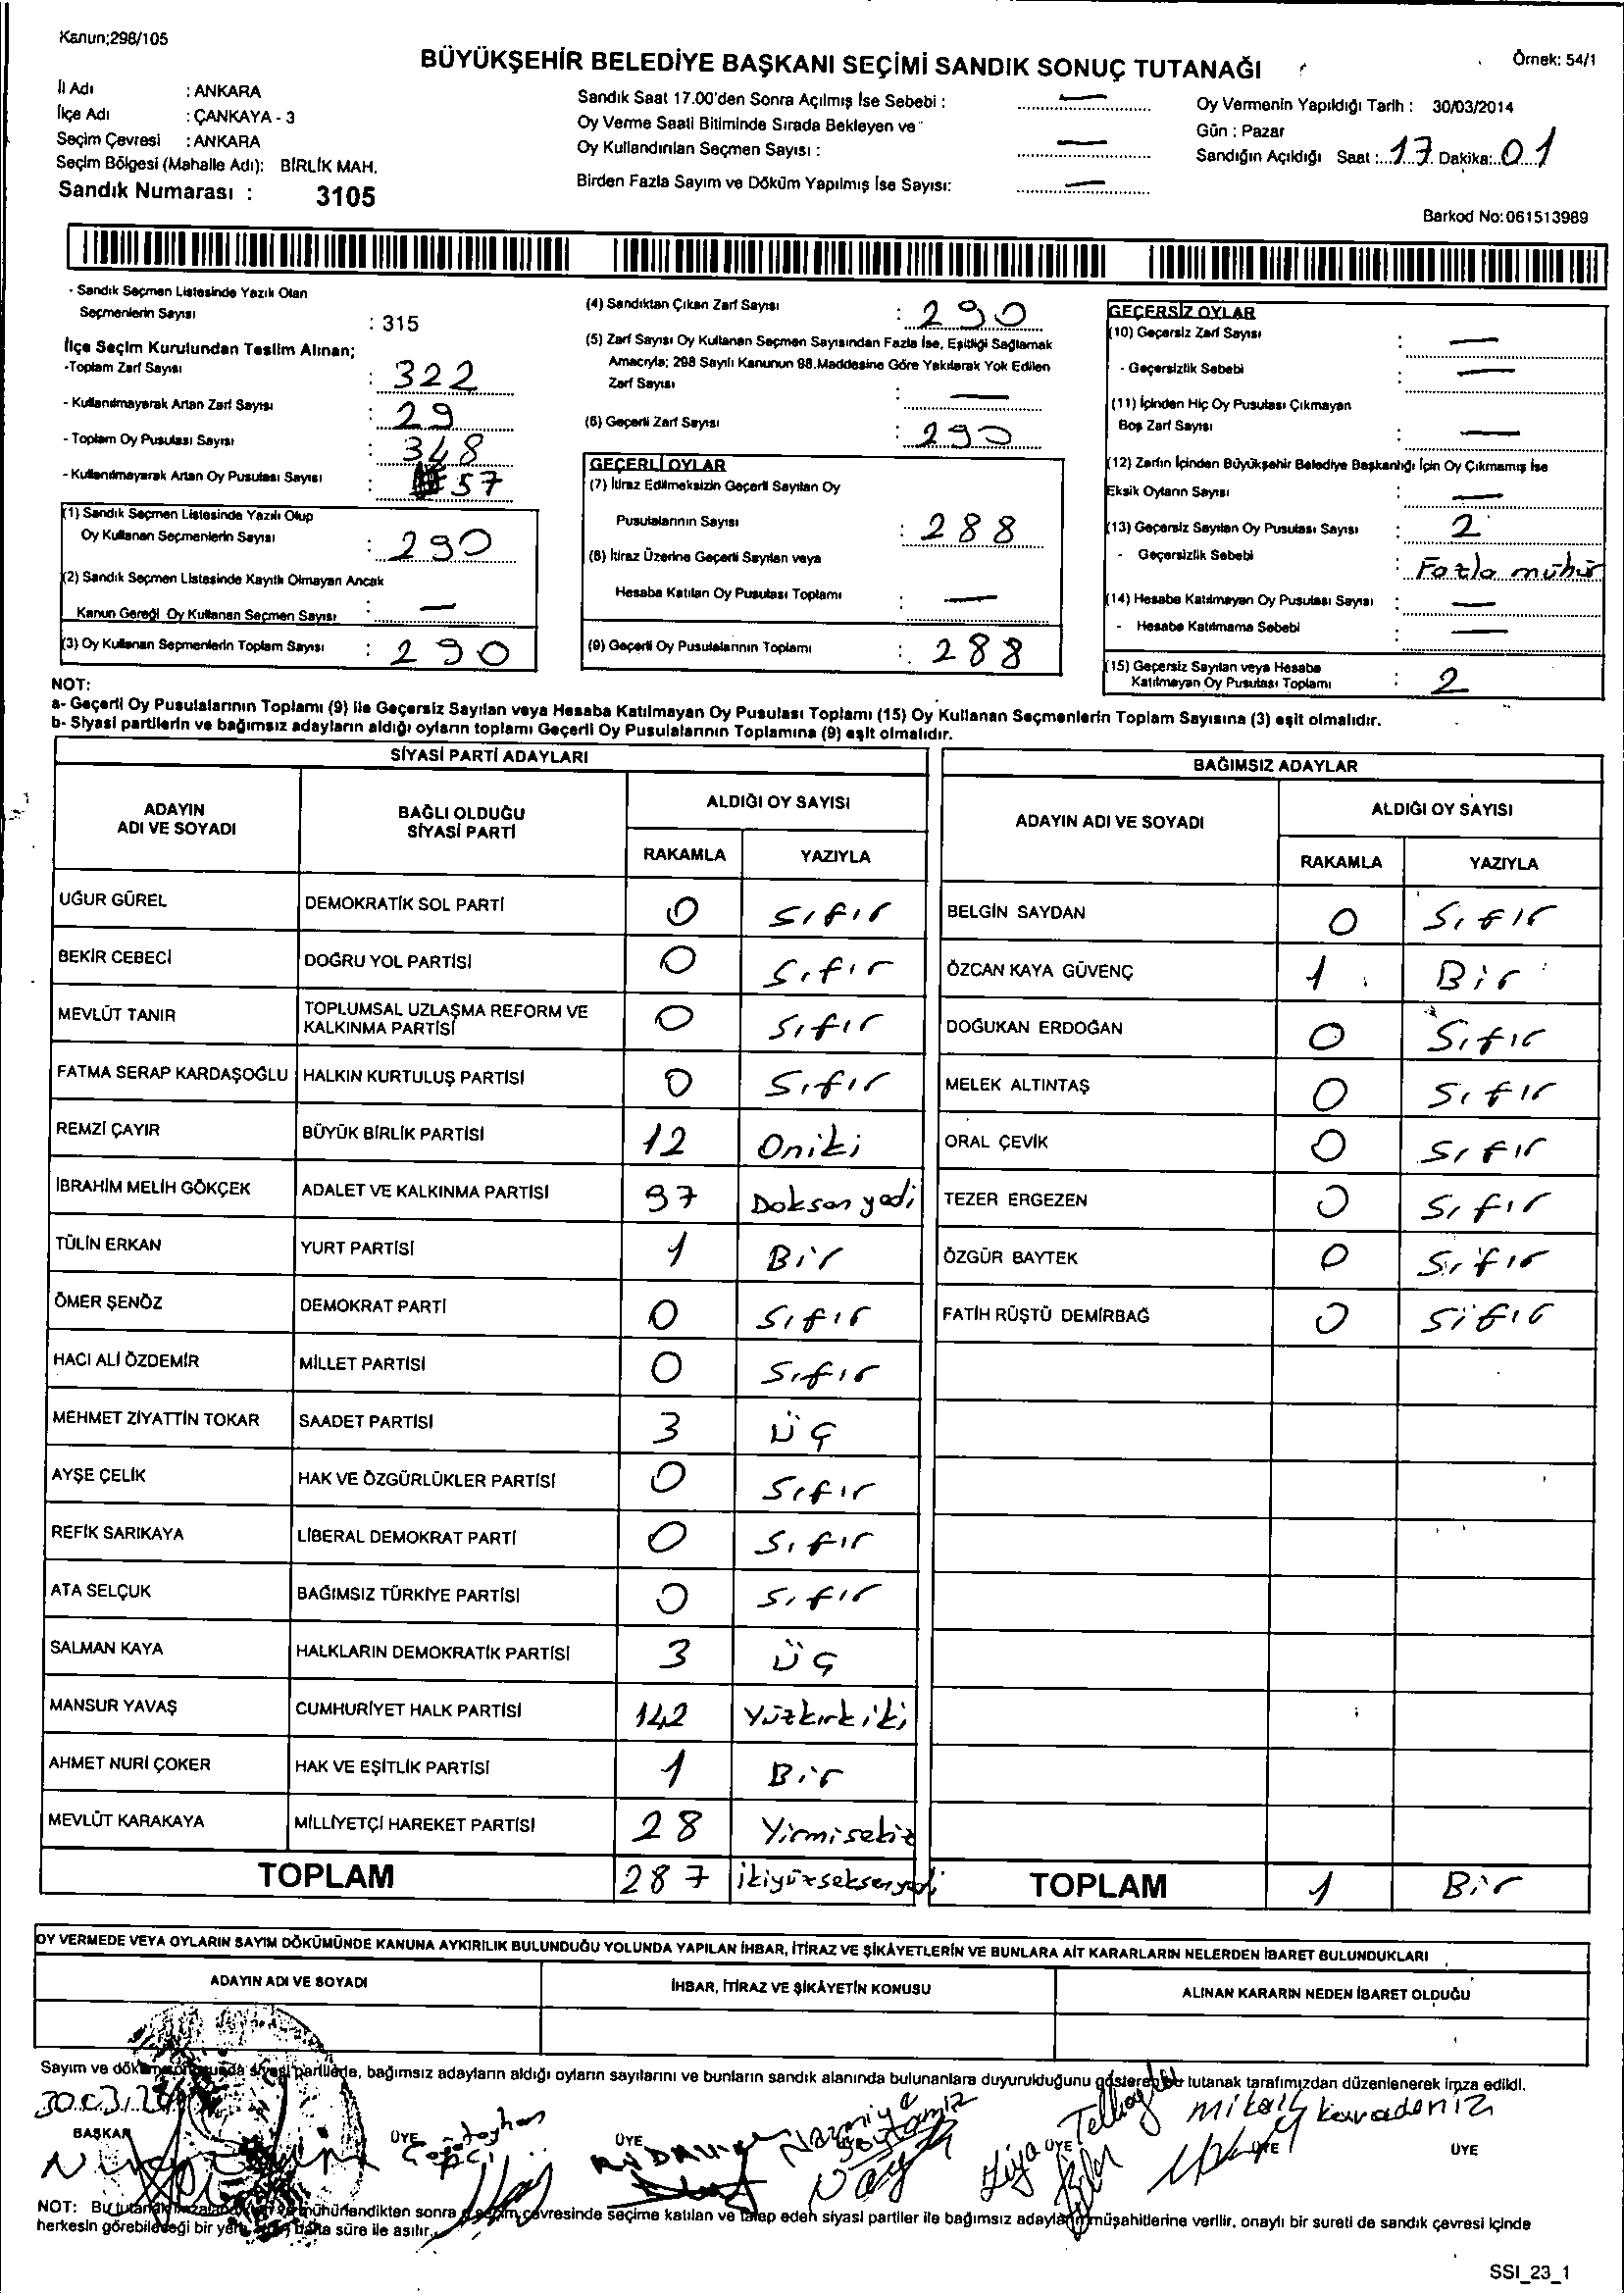 Kanun;298/105
BÜYÜKŞEHİR BELEDİYE BAŞKANI SEÇİMİ SANDIK SONUÇ TUTANAĞI
Örnek: 54/1
İl Adı : ANKARA
İlçe Adı : ÇANKAYA - 3
Seçim Çevresi : ANKARA
Seçim Bölgesi (Mahalle Adı): BİRLİK MAH.
Sandık Numarası : 3105
Sandık Saat 17.00'den Sonra Açılmış İse Sebebi : —
Oy Verme Saati Bitiminde Sırada Bekleyen ve
Oy Kullandırılan Seçmen Sayısı : —
Birden Fazla Sayım ve Döküm Yapılmış İse Sayısı: —
Oy Vermenin Yapıldığı Tarih : 30/03/2014
Gün : Pazar
Sandığın Açıldığı Saat : 17 Dakika: 01
Barkod No:061513989
- Sandık Seçmen Listesinde Yazılı Olan
Seçmenlerin Sayısı : 315
İlçe Seçim Kurulundan Teslim Alınan;
-Toplam Zarf Sayısı : 322
- Kullanılmayarak Artan Zarf Sayısı : 29
- Toplam Oy Pusulası Sayısı : 348
- Kullanılmayarak Artan Oy Pusulası Sayısı : 57
(1) Sandık Seçmen Listesinde Yazılı Olup
Oy Kullanan Seçmenlerin Sayısı : 290
(2) Sandık Seçmen Listesinde Kayıtlı Olmayan Ancak
Kanun Gereği Oy Kullanan Seçmen Sayısı : —
(3) Oy Kullanan Seçmenlerin Toplam Sayısı : 290
(4) Sandıktan Çıkan Zarf Sayısı : 290
(5) Zarf Sayısı Oy Kullanan Seçmen Sayısından Fazla İse, Eşitliği Sağlamak
Amacıyla; 298 Sayılı Kanunun 98.Maddesine Göre Yakılarak Yok Edilen
Zarf Sayısı : —
(6) Geçerli Zarf Sayısı : 290
GEÇERLİ OYLAR
(7) İtiraz Edilmeksizin Geçerli Sayılan Oy
Pusulalarının Sayısı : 288
(8) İtiraz Üzerine Geçerli Sayılan veya
Hesaba Katılan Oy Pusulası Toplamı : —
(9) Geçerli Oy Pusulalarının Toplamı : 288
GEÇERSİZ OYLAR
(10) Geçersiz Zarf Sayısı : —
- Geçersizlik Sebebi : —
(11) İçinden Hiç Oy Pusulası Çıkmayan
Boş Zarf Sayısı : —
(12) Zarfın İçinden Büyükşehir Belediye Başkanlığı İçin Oy Çıkmamış İse
Eksik Oyların Sayısı : —
(13) Geçersiz Sayılan Oy Pusulası Sayısı : 2
- Geçersizlik Sebebi : Fazla mühür
(14) Hesaba Katılmayan Oy Pusulası Sayısı : —
- Hesaba Katılmama Sebebi : —
(15) Geçersiz Sayılan veya Hesaba
Katılmayan Oy Pusulası Toplamı : 2
NOT:
a- Geçerli Oy Pusulalarının Toplamı (9) ile Geçersiz Sayılan veya Hesaba Katılmayan Oy Pusulası Toplamı (15) Oy Kullanan Seçmenlerin Toplam Sayısına (3) eşit olmalıdır.
b- Siyasi partilerin ve bağımsız adayların aldığı oyların toplamı Geçerli Oy Pusulalarının Toplamına (9) eşit olmalıdır.
SİYASİ PARTİ ADAYLARI
ADAYIN ADI VE SOYADI
BAĞLI OLDUĞU SİYASİ PARTİ
ALDIĞI OY SAYISI
RAKAMLA YAZIYLA
UĞUR GÜREL DEMOKRATİK SOL PARTİ 0 Sıfır
BEKİR CEBECİ DOĞRU YOL PARTİSİ 0 Sıfır
MEVLÜT TANIR TOPLUMSAL UZLAŞMA REFORM VE KALKINMA PARTİSİ 0 Sıfır
FATMA SERAP KARDAŞOĞLU HALKIN KURTULUŞ PARTİSİ 0 Sıfır
REMZİ ÇAYIR BÜYÜK BİRLİK PARTİSİ 12 Oniki
İBRAHİM MELİH GÖKÇEK ADALET VE KALKINMA PARTİSİ 97 Doksan yedi
TÜLİN ERKAN YURT PARTİSİ 1 Bir
ÖMER ŞENÖZ DEMOKRAT PARTİ 0 Sıfır
HACI ALİ ÖZDEMİR MİLLET PARTİSİ 0 Sıfır
MEHMET ZİYATTİN TOKAR SAADET PARTİSİ 3 Üç
AYŞE ÇELİK HAK VE ÖZGÜRLÜKLER PARTİSİ 0 Sıfır
REFİK SARIKAYA LİBERAL DEMOKRAT PARTİ 0 Sıfır
ATA SELÇUK BAĞIMSIZ TÜRKİYE PARTİSİ 0 Sıfır
SALMAN KAYA HALKLARIN DEMOKRATİK PARTİSİ 3 Üç
MANSUR YAVAŞ CUMHURİYET HALK PARTİSİ 142 Yüzkırkiki
AHMET NURİ ÇOKER HAK VE EŞİTLİK PARTİSİ 1 Bir
MEVLÜT KARAKAYA MİLLİYETÇİ HAREKET PARTİSİ 28 Yirmisekiz
TOPLAM 287 ikiyüzseksenyedi
BAĞIMSIZ ADAYLAR
ADAYIN ADI VE SOYADI
ALDIĞI OY SAYISI
RAKAMLA YAZIYLA
BELGİN SAYDAN 0 Sıfır
ÖZCAN KAYA GÜVENÇ 1 Bir
DOĞUKAN ERDOĞAN 0 Sıfır
MELEK ALTINTAŞ 0 Sıfır
ORAL ÇEVİK 0 Sıfır
TEZER ERGEZEN 0 Sıfır
ÖZGÜR BAYTEK 0 Sıfır
FATİH RÜŞTÜ DEMİRBAĞ 0 Sıfır
TOPLAM 1 Bir
OY VERMEDE VEYA OYLARIN SAYIM DÖKÜMÜNDE KANUNA AYKIRILIK BULUNDUĞU YOLUNDA YAPILAN İHBAR, İTİRAZ VE ŞİKÂYETLERİN VE BUNLARA AİT KARARLARIN NELERDEN İBARET BULUNDUKLARI
ADAYIN ADI VE SOYADI
İHBAR, İTİRAZ VE ŞİKÂYETİN KONUSU
ALINAN KARARIN NEDEN İBARET OLDUĞU
Sayım ve döküm partilerle, bağımsız adayların aldığı oyların sayılarını ve bunların sandık alanında bulunanlara duyurulduğunu gösteren bu tutanak tarafımızdan düzenlenerek imza edildi.
BAŞKAN ÜYE ÜYE ÜYE ÜYE ÜYE
Mikail Karadeniz
NOT: Bu mühürlendikten sonra çevresinde seçime katılan ve talep eden siyasi partiler ile bağımsız adayların müşahitlerine verilir, onaylı bir sureti de sandık çevresi içinde
herkesin görebileceği bir yere hafta süre ile asılır.
SSI_23_1